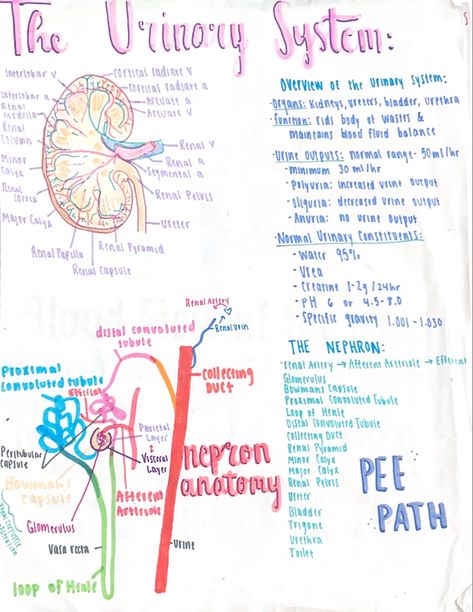 The Urinary System:
Interlobar v
Interlobar a
Renal Medulla
Renal Column
Minor Calyx
Renal Cortex
Major Calyx
Renal Papilla
Renal Capsule
Renal Pyramid
Cortical radiate v
Cortical radiate a
Arcuate a
Arcuate v
Renal v
Renal a
Segmental a
Renal Pelvis
Ureter
Overview of the Urinary System:
· Organs: Kidneys, ureters, bladder, urethra
· function: rids body of wastes &
maintains blood fluid balance
· Urine outputs: normal range - 50ml/hr
- minimum 30 ml/hr
- Polyuria: increased urine output
- Oliguria: decreased urine output
- Anuria: no urine output
· Normal Urinary Constituents:
- Water 95%
- Urea
- Creatine 1-2g /24hr
- PH 6 or 4.5-8.0
- Specific gravity 1.001 - 1.030
THE NEPHRON:
Renal Artery → Afferent Arteriole → Efferent
Glomerulus
Bowmans Capsule
Proximal Convoluted Tubule
Loop of Henle
Distal Convoluted Tubule
Collecting Duct
Renal Pyramid
Minor Calyx
Major Calyx
Renal Pelvis
Ureter
Bladder
Trigone
Urethra
Toilet
PEE
PATH
Renal Artery
Renal Vein
distal convoluted
tubule
collecting
Duct
Proximal
Convoluted tubule
Efferent
Parietal
Layer
Visceral
Layer
Peritubular
capsule
Bowmans
capsule
Glomerulus
Afferent
Arteriole
Vasa recta
loop of Henle
Urine
nepron
anatomy